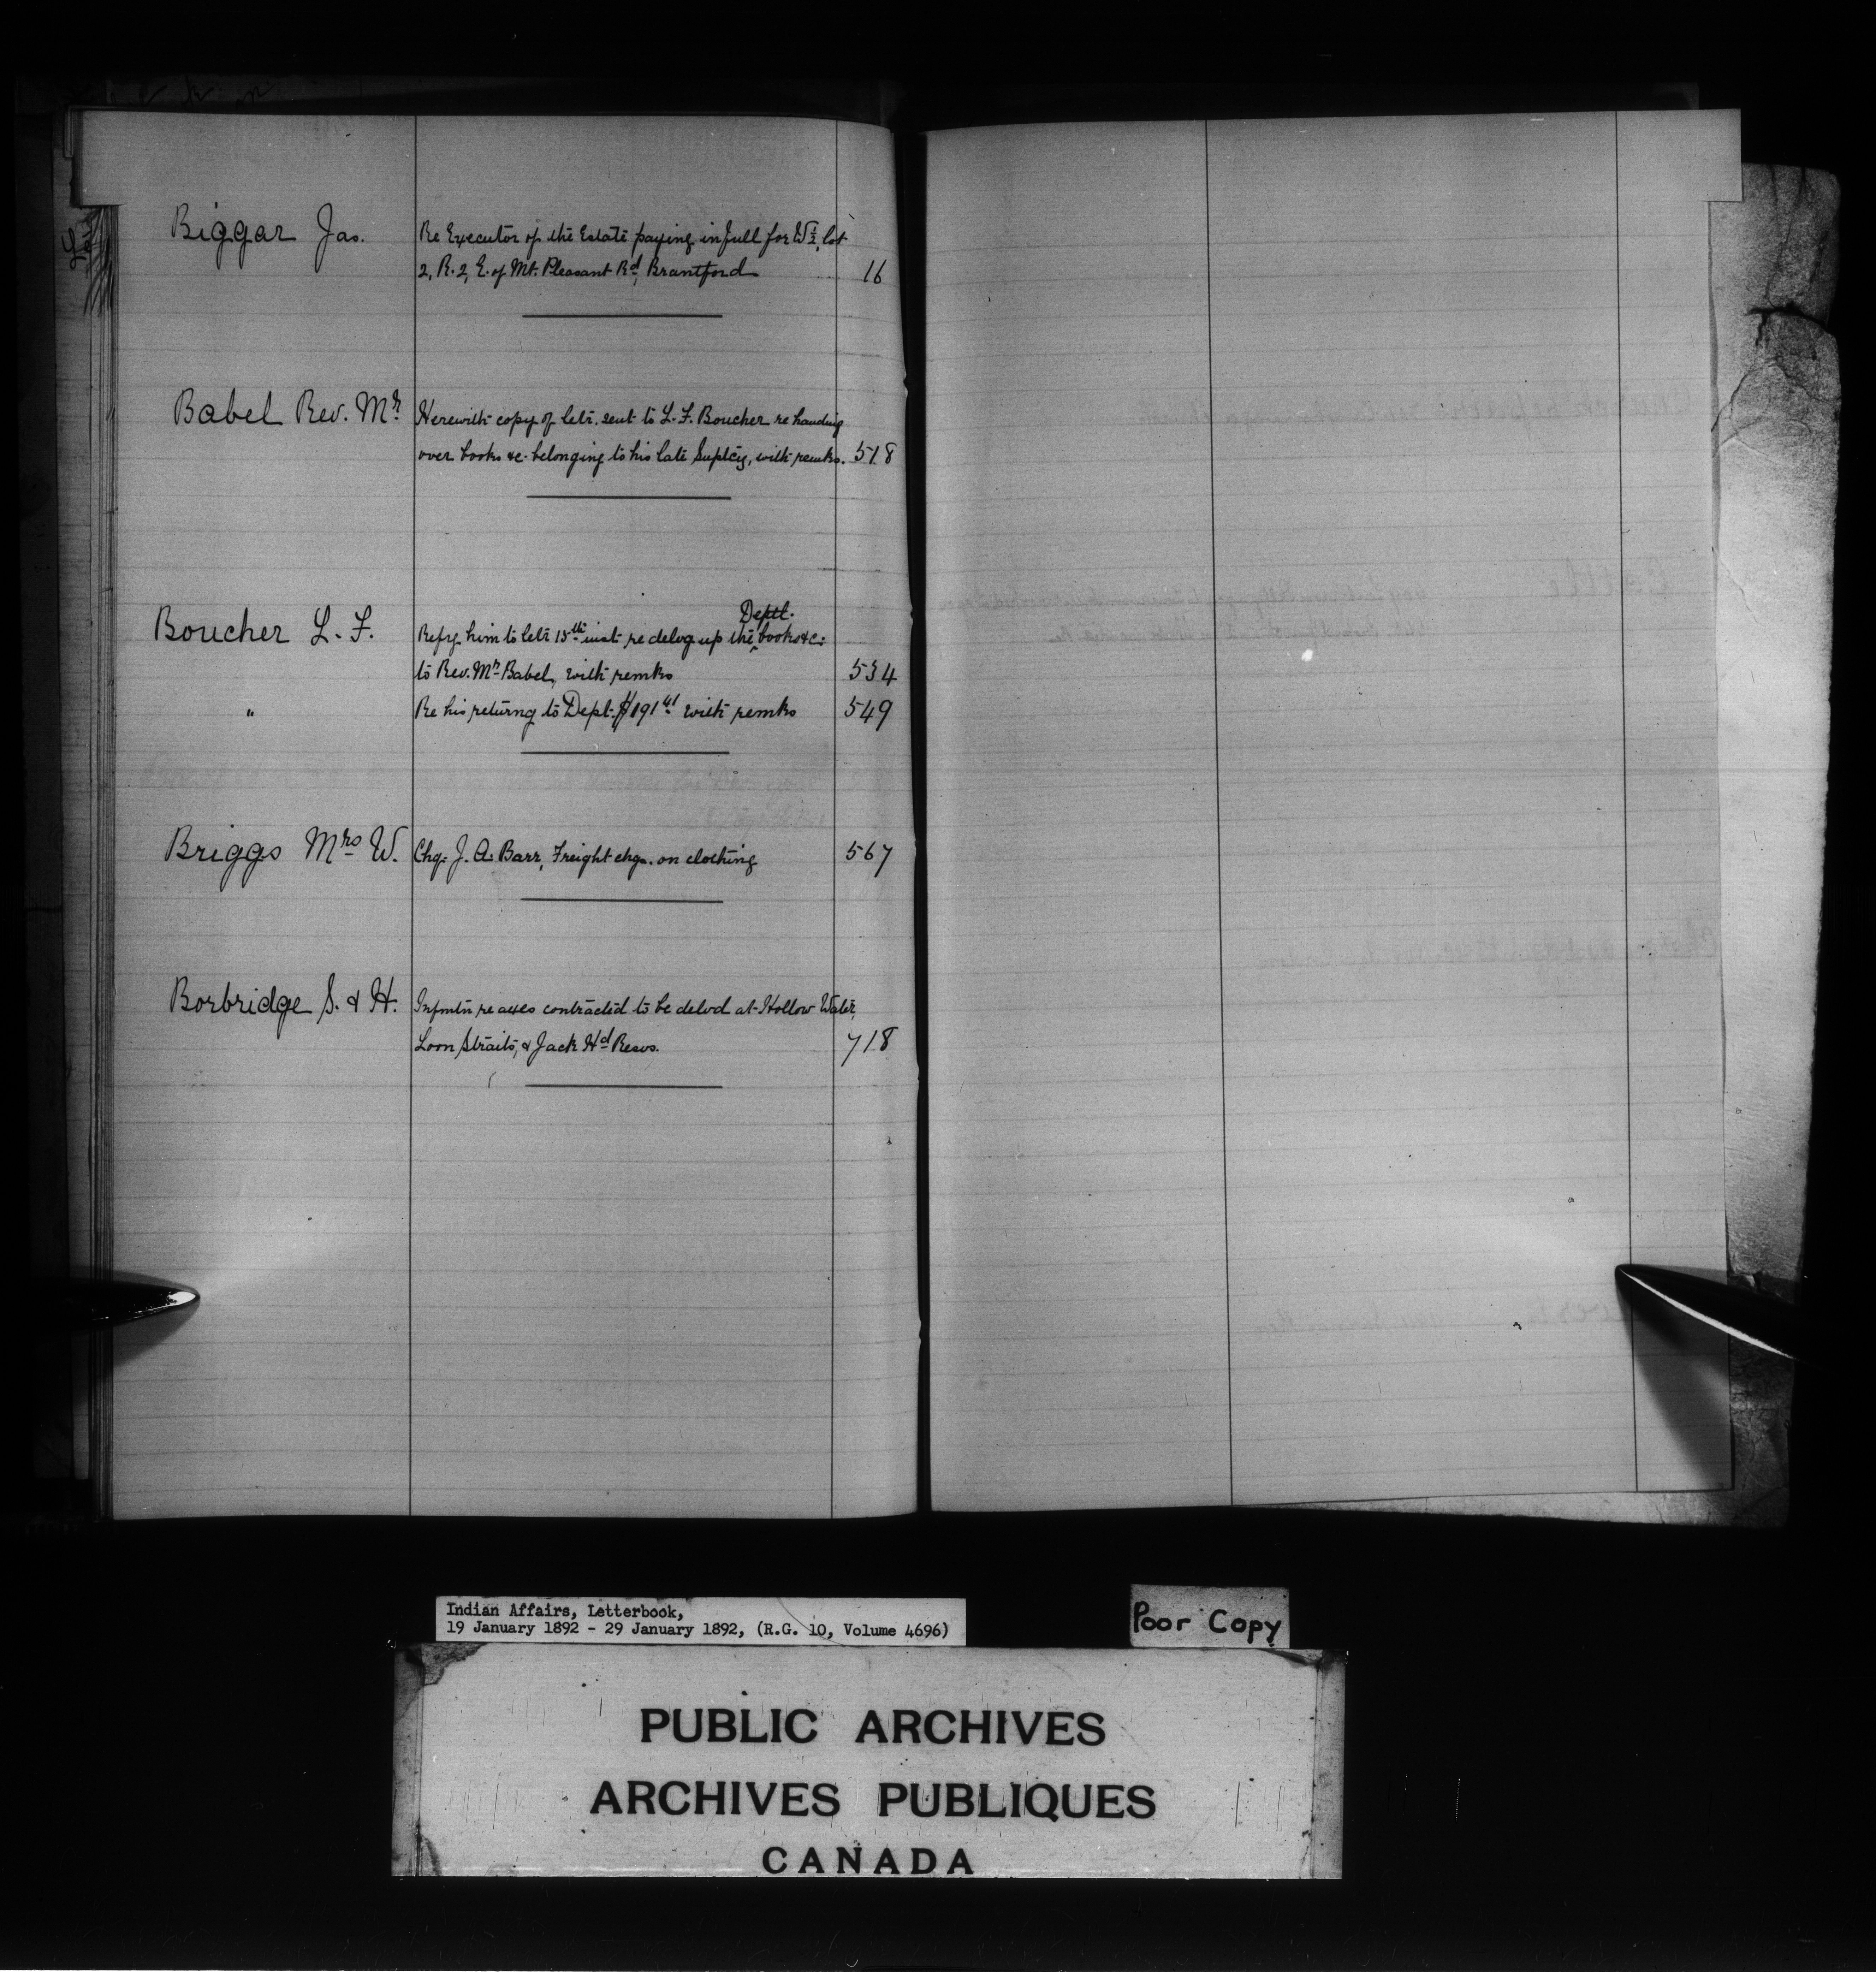 Biggar Jas. Re Executor of the Estate paying in full for W½, lot
2, R. 2, E. of Mt. Pleasant Rd, Brantford 16
Babel Rev. Mr Herewith copy of letr. sent to L. F. Boucher re handing
over books &c. belonging to his late Suptcy, with remks. 518
Deptl.
Boucher L. F. Refrg. him to letr 15th inst re delvg up the books &c.
to Rev. Mr Babel, with remks 534
" Re his returng to Dept. $191 41 with remks 549
Briggs Mrs W. Chq. J. A. Barr, Freight chgs. on clothing 567
Borbridge S. & H. Infmtn re axes contracted to be delvd at Hollow Water,
Loon Straits, & Jack Hd Resvs. 718
Indian Affairs, Letterbook,
19 January 1892 - 29 January 1892, (R.G. 10, Volume 4696)
Poor Copy
PUBLIC ARCHIVES
ARCHIVES PUBLIQUES
CANADA